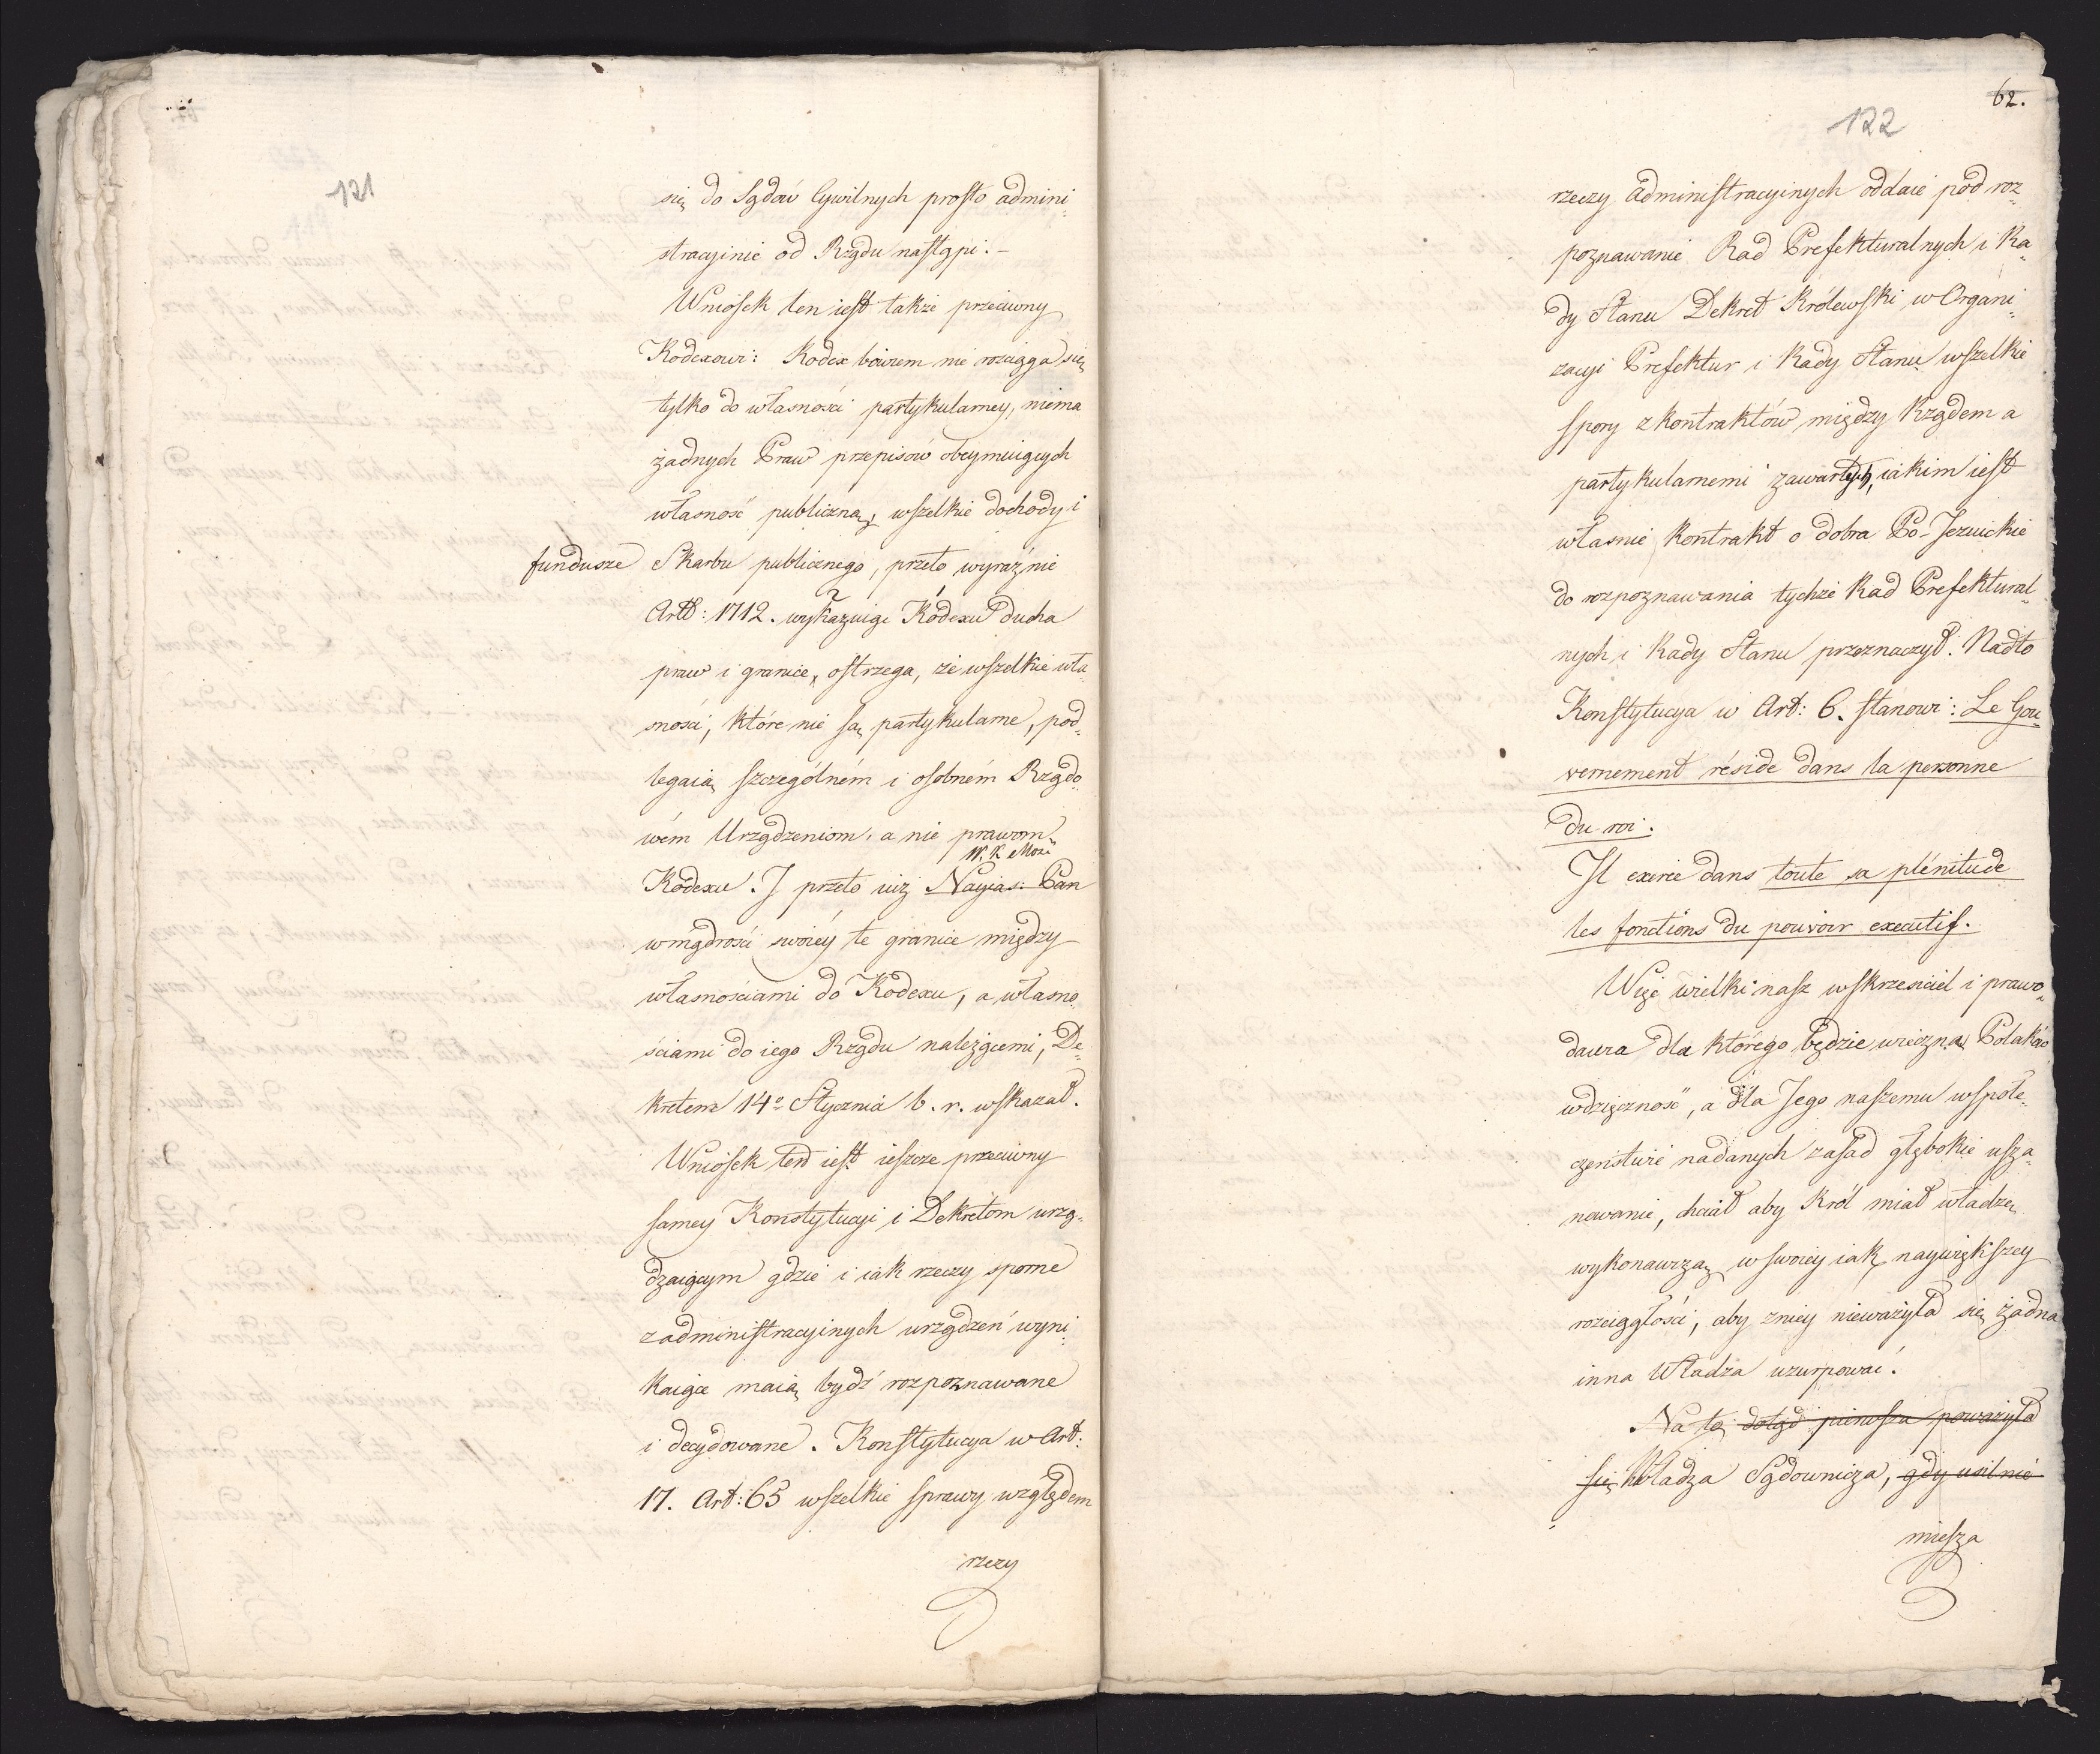 121
się do Sądów Cywilnych prosto admini„
stracyinie od Rządu nastąpi. –
Wniosek ten iest także przeciwny
Kodexowi: Kodex bowiem nie rozciąga się
tylko do własności partykularney, niema
żadnych Praw przepisów obeymuiących
własność publiczną, wszelkie dochody i
fundusze Skarbu publicznego, przeto wyraźnie
Artł: 1712. wykazuiąc Kodexu ducha
praw i granice, ostrzega, że wszelkie wła„
sności, które nie są partykularne, pod„
legaią szczególném i osobném Rządo„
wém Urządzeniom, a nie prawom
W. K. Mość
Kodexu. I przeto iuż Nayias: Pan
w mądrości swoiéy te granice między
własnościami do Kodexu, a własno„
ściami do iego Rządu należącemi, De„
kretem 14º Stycznia b. r. wskazał.
Wniosek ten iest ieszcze przeciwny
samey Konstytucyi i Dekretom urzą„
dzaiącym gdzie i iak rzeczy sporne
z administracyinych urządzeń wyni„
kaiące maią bydź rozpoznawane
i decydowane. Konstytucya w Art:
17. Art: 65 wszelkie sprawy względem
rzeczy
62.
122
rzeczy administracyinych oddaie pod roz„
poznawanie Rad Prefekturalnych i Ra„
dy Stanu Dekret Królewski w Organi„
zacyi Prefektur i Rady Stanu wszelkie
spory z kontraktów między Rządem a
partykularnemi zawartych, iakim iest
własnie kontrakt o dobra Po-Jezuickie
do rozpoznawania tychże Rad Prefektural„
nych i Rady Stanu przeznaczył. Nadto
Konstytucya w Art: 6. stanowi: Le Gou„
vernement réside dans la personne
du roi.
Il exerce dans toute sa plénitude
les fonctions du pouvoir executif.
Więc wielki nasz wskrzesiciel i prawo„
dawca dla którego będzie wieczna Polaków
wdzięczność, a dla Jego naszemu wspołe„
czeństwie nadanych zasad głębokie usza„
nowanie, chciał aby Król miał władzę
wykonawczą w swoiey iak naywiększey
rozciągłości, aby z niey nieważyła się żadna
inna Władza uzurpować.
Na to dotąd pierwsza poważyła
się Władza Sądownicza, gdy usilnie
miesza